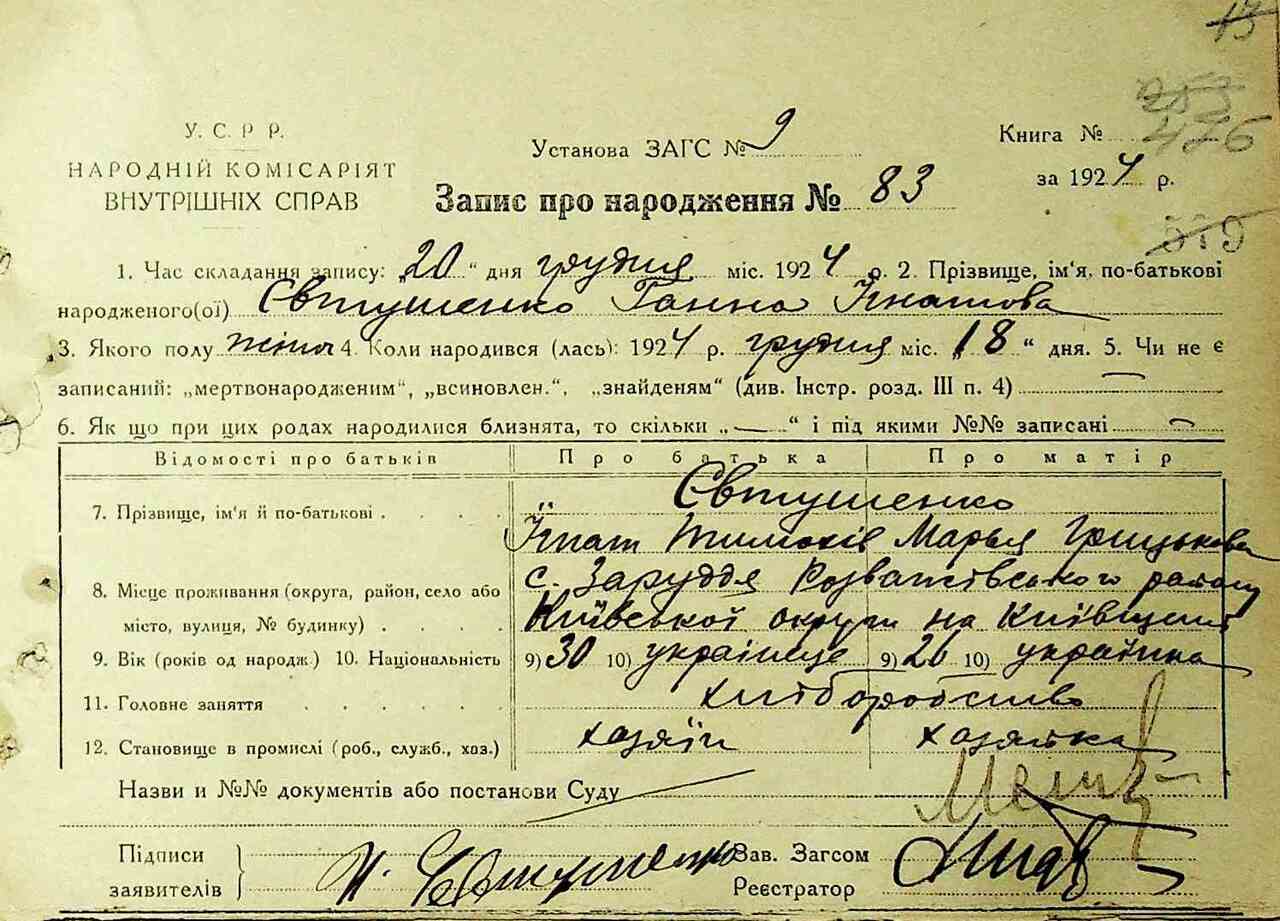 13
253
476
У. С. Р. Р.
НАРОДНІЙ КОМІСАРІЯТ
ВНУТРІШНІХ СПРАВ
Установа ЗАГС № 9
Запис про народження № 83
Книга №
за 1924 р.
579
1. Час складання запису: „20“ дня грудня міс. 1924 р. 2. Прізвище, ім'я, по-батькові
народженого(ої) Євтушенко Ганна Ігнатова
3. Якого полу жіноч 4. Коли народився (лась): 1924 р. грудня міс. „18“ дня. 5. Чи не є
записаний: „мертвонародженим“, „всиновлен.“, „знайденям“ (див. Інстр. розд. III п. 4) —
6. Як що при цих родах народилися близнята, то скільки „—“ і під якими №№ записані —
Відомості про батьків Про батька Про матір
7. Прізвище, ім'я й по-батькові . . . . Євтушенко
Ігнат Тимохів Марья Грицькова
8. Місце проживання (округа, район, село або
місто, вулиця, № будинку) . . . .
с. Заруддя Розважівського району
Київської округи на Київщині
9. Вік (років од народж.) 10. Національність 9) 30 10) українець 9) 26 10) українка
11. Головне заняття . . . . . . хліборобство
12. Становище в промислі (роб., служб., хаз.) хазяїн хазяйка
Назви и №№ документів або постанови Суду
Підписи
заявителів
Євтушенко
Зав. Загсом
Реєстратор